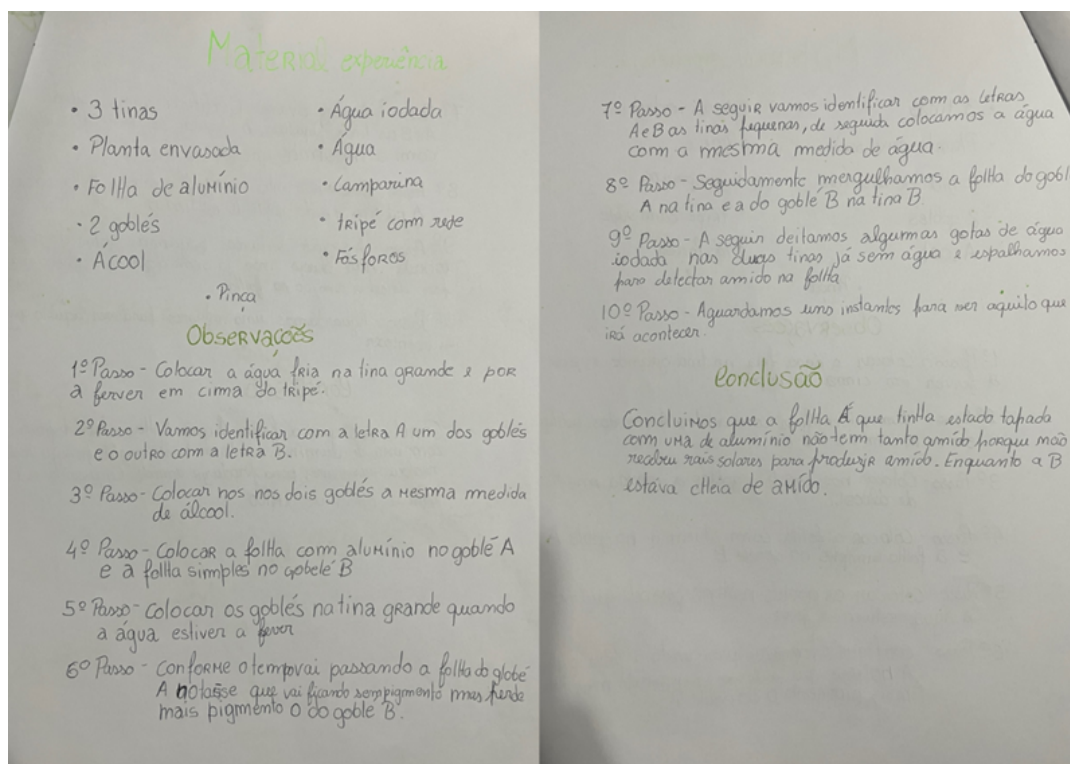 Material experiência
• 3 tinas
• Planta envasada
• Folha de alumínio
• 2 goblés
• Ácool
• Água iodada
• Água
• Lamparina
• tripé com rede
• Fósforos
• Pinca
Observações
1º Passo - Colocar a água fria na tina grande e por
a ferver em cima do tripé.
2º Passo - Vamos identificar com a letra A um dos goblés
e o outro com a letra B.
3º Passo - Colocar nos nos dois goblés a mesma medida
de álcool.
4º Passo - Colocar a folha com alumínio no goblé A
e a folha simples no gobelé B
5º Passo - Colocar os goblés na tina grande quando
a água estiver a fever
6º Passo - Conforme o tempo vai passando a folha do globé
A notasse que vai ficando sem pigmento mas perde
mais pigmento o do goblé B.
7º Passo - A seguir vamos identificar com as letras
A e B as tinas pequenas, de seguida colocamos a água
com a mesma medida de água.
8º Passo - Seguidamente mergulhamos a folha do gobl
A na tina e a do goblé B na tina B
9º Passo - A seguir deitamos algumas gotas de água
iodada nas duas tinas já sem água e espalhamos
para detectar amido na folha
10º Passo - Aguardamos uns instantes para ver aquilo que
irá acontecer.
Conclusão
Concluimos que a folha A que tinha estado tapada
com uma de alumínio não tem tanto amido porque não
recebeu rais solares para produzir amido. Enquanto a B
estáva cheia de amído.